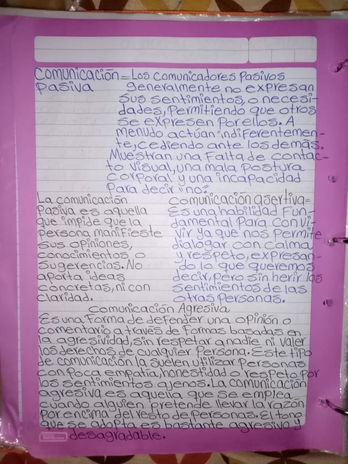 Comunicación = Los comunicadores Pasivos
Pasiva generalmente no expresan
sus sentimientos, o necesi-
dades, Permitiendo que otros
se expresen Por ellos. A
menudo actúan indiferentemen-
te, cediendo ante los demás.
Muestran una Falta de contac-
to visual, una mala Postura
corporal y una incapacidad
Para decir "no".
La comunicación
Pasiva es aquella
que impide que la
persona manifieste
sus opiniones,
conocimientos o
sugerencias. No
aporta ideas
concretas, ni con
claridad.
Comunicación asertiva=
Es una habilidad Fun-
damental Para convi-
vir ya que nos Permite
dialogar con calma
y respeto, expresan-
do lo que queremos
decir, pero sin herir los
sentimientos de las
otras Personas.
Comunicación Agresiva
Es una Forma de defender una opinión o
comentario a través de Formas basadas en
la agresividad, sin respetar a nadie ni valer
los derechos de cualquier Persona. Este tipo
de comunicación la suelen utilizar Personas
con Poca empatía, honestidad o respeto Por
los sentimientos ajenos. La comunicación
agresiva es aquella que se emplea
cuando alguien pretende llevar la razon
por encima del resto de personas. El tono
que se adopta es bastante agresivo y
desagradable.